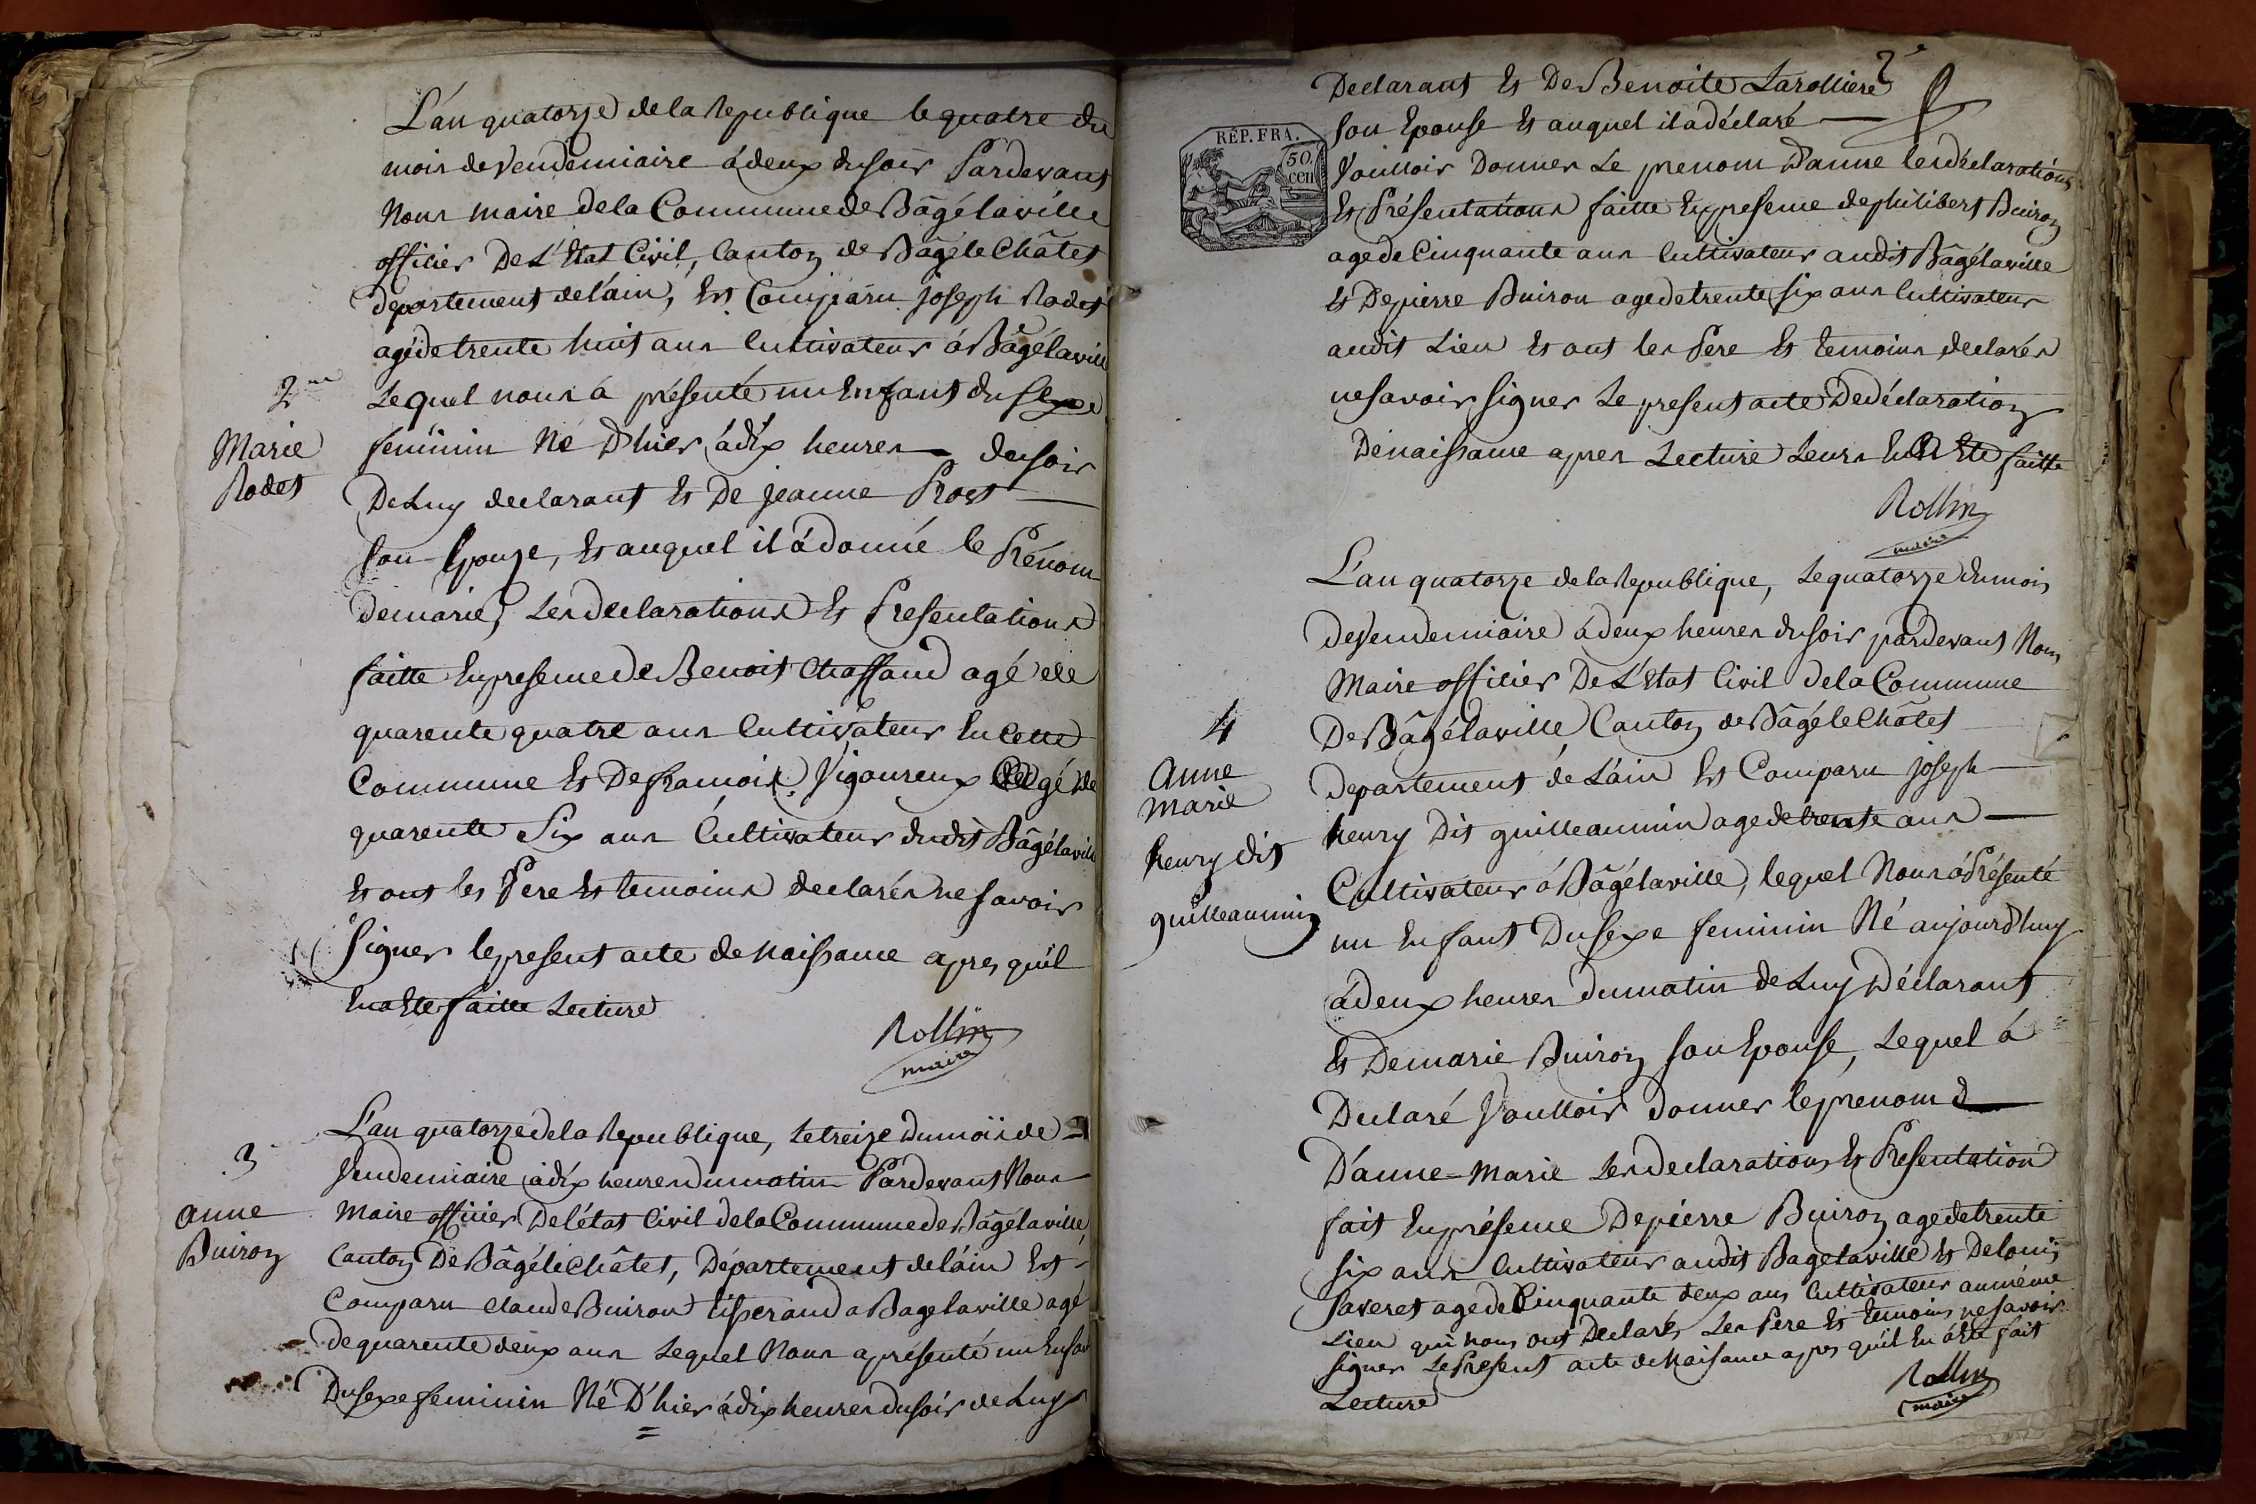 L'an quatorze de la Republique le quatre du
mois de Vendemiaire à deux du soir Pardevant
Nous maire de la Commune de Bâgélaville
officier De L'Etat Civil, Canton de Bâgé le Châtel
departement de l'ain, Est Comparu joseph Rodet
agé de trente huit ans Cultivateur à Bâgélaville
2me
Marie
Rodet
Lequel nous à présenté un Enfant du sexe
feminin Né D'hier à dix heures du soir
De Luy declarant Et De jeanne Prost
son Epouze, Et auquel il à donné le Prénom
de marie, Les declarations Et Presentations
faitte En presence de Benoit Chaffaud agé de
quarente quatre ans Cultivateur En Cette
Commune Et De framois Vigoureux agé de
quarente Six ans Cultivateur dudit Bâgélaville
Et ont les Pere Et temoins declarés ne savoir
Signer le present acte de Naissance apres qu'il
En a Ete faitte Lecture
Rollin
maire
3
anne
Buiron
L'an quatorze de la Republique, Le treize Du mois de
Vendemiaire à dix heures du matin Pardevant Nous
Maire officier De l'état Civil de la Commune de Bâgélaville,
Canton De Bâgé le Châtel, Département de l'ain Est
Comparu claude Buiron tisserand a Bagelaville agé
de quarente deux ans Lequel Nous a présenté un Enfant
Du sexe feminin Né D'hier à dix heures du soir de Luy
2e
Declarant Et De Benoite Larolliere
son Epouse Et auquel il a déclaré
RÉP. FRA.
50
cen
Voulloir Donner Le prenom D'anne les déclarations
Et Présentations faitte En presence de philibert Buiron
age de Cinquante ans Cultivateur audit Bâgélaville
Et De pierre Buiron age de trente six ans Cultivateur
audit Lieu Et ont les Pere Et temoins declarés
ne savoir signer Le present acte De déclaration
De naissance apres Lecture Leurs En Ete faitte
Rollin
maire
4
anne
marie
henry dit
guilleaumin
L'an quatorze de la Republique, Le quatorze du mois
de Vendemiaire à deux heures du soir pardevant Nous
Maire officier De L'Etat Civil de la Commune
De Bâgélaville Canton de Bâgé le Châtel
departement de L'ain Est Comparu joseph
henry Dit guilleaumin age de trente ans
Cultivateur à Bâgélaville, lequel Nous à Présenté
un Enfant Du sexe feminin Né aujourd'huy
à deux heures du matin de Luy Déclarant
Et De marie Buiron son Epouse, Lequel à
Declaré Voulloir donner le prenom d
D'anne-Marie Les declarations Et Presentation
fait En présence De pierre Buiron age de trente
six ans Cultivateur audit Bagelaville Et De louis
Saveret age de Cinquante deux ans Cultivateur au même
Lieu qui nous ont Declarés Les Pere Et temoins ne savoir
signer Le Present acte de Naisance apres qu'il En à Eté fait
Lecture
Rollin
maire